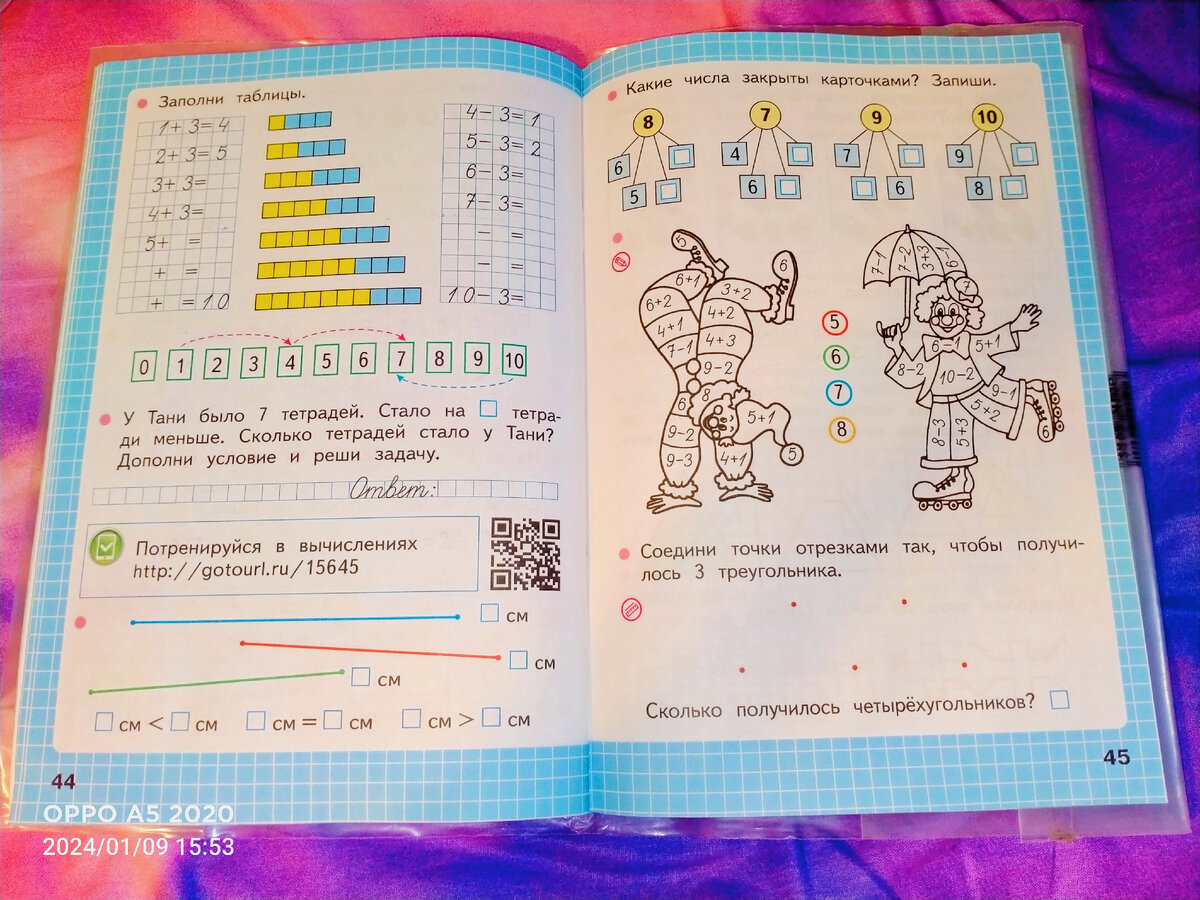 Заполни таблицы.
1+3=4
2+3=5
3+3=
4+3=
5+ =
+ =
+ =10
4-3=1
5-3=2
6-3=
7-3=
- =
- =
10-3=
0 1 2 3 4 5 6 7 8 9 10
У Тани было 7 тетрадей. Стало на тетра-
ди меньше. Сколько тетрадей стало у Тани?
Дополни условие и реши задачу.
Ответ:
Потренируйся в вычислениях
http://gotourl.ru/15645
см
см
см
см < см см = см см > см
44
Какие числа закрыты карточками? Запиши.
8 7 9 10
6 4 7 9
5 6 6 8
5
6
6+1
3+2
6+2
4+2
4+1
4+3
7-1
9-2
8
6
5+1
9-2
5
9-3
4+1
5
6
7
8
7-1
7-2
3+3
6-1
7
6-1
5+1
8-2
10-2
9-1
5+2
8-3
5+3
6
Соедини точки отрезками так, чтобы получи-
лось 3 треугольника.
Сколько получилось четырёхугольников?
45
OPPO A5 2020
2024/01/09 15:53